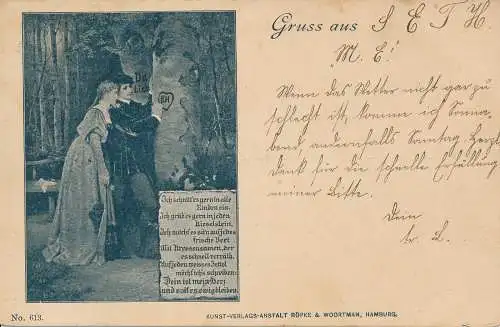 Gruss aus S E T H
M. E!
Wenn das Wetter nicht gar zu
schlecht ist, komm ich Sonna-
bend andernfalls Sonntag. Herzl.
Dank für die schnelle Erfüllung
meiner Bitte.
Dein
Ich schnitt es gern in alle
Rinden ein,
Ich grüb es gern in jeden
Kieselstein,
Ich möcht es sä'n auf jedes
frische Beet
Mit Kressensamen, der
es schnell verräth,
Auf jeden weissen Zettel
möcht ich's schreiben:
Dein ist mein Herz
und soll es ewig bleiben.
No. 613.
KUNST-VERLAGS-ANSTALT RÖPKE & WOORTMAN, HAMBURG.